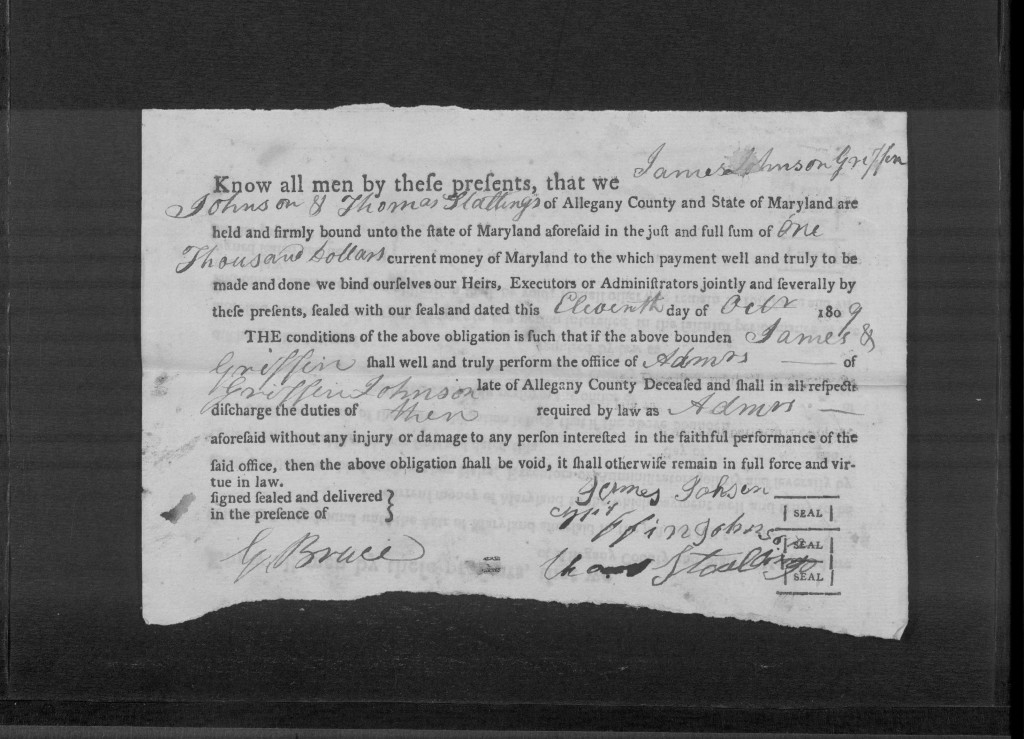 Know all men by theſe preſents, that we James Johnson Griffin
Johnson & Thomas Stallings of Allegany County and State of Maryland are
held and firmly bound unto the ſtate of Maryland aforeſaid in the juſt and full ſum of One
Thousand Dollars current money of Maryland to the which payment well and truly to be
made and done we bind ourſelves our Heirs, Executors or Adminiſtrators jointly and ſeverally by
theſe preſents, ſealed with our ſeals and dated this Eleventh day of Octr 1809
THE conditions of the above obligation is ſuch that if the above bounden James &
Griffin ſhall well and truly perform the office of Admrs — of
Griffin Johnson late of Allegany County Deceaſed and ſhall in all reſpects
diſcharge the duties of them required by law as Admrs —
aforeſaid without any injury or damage to any perſon intereſted in the faithful performance of the
ſaid office, then the above obligation ſhall be void, it ſhall otherwiſe remain in full force and vir-
tue in law.
ſigned ſealed and delivered }
in the preſence of
James Johson
SEAL
Griffin Johnson
SEAL
G Bruce
Stallings
SEAL